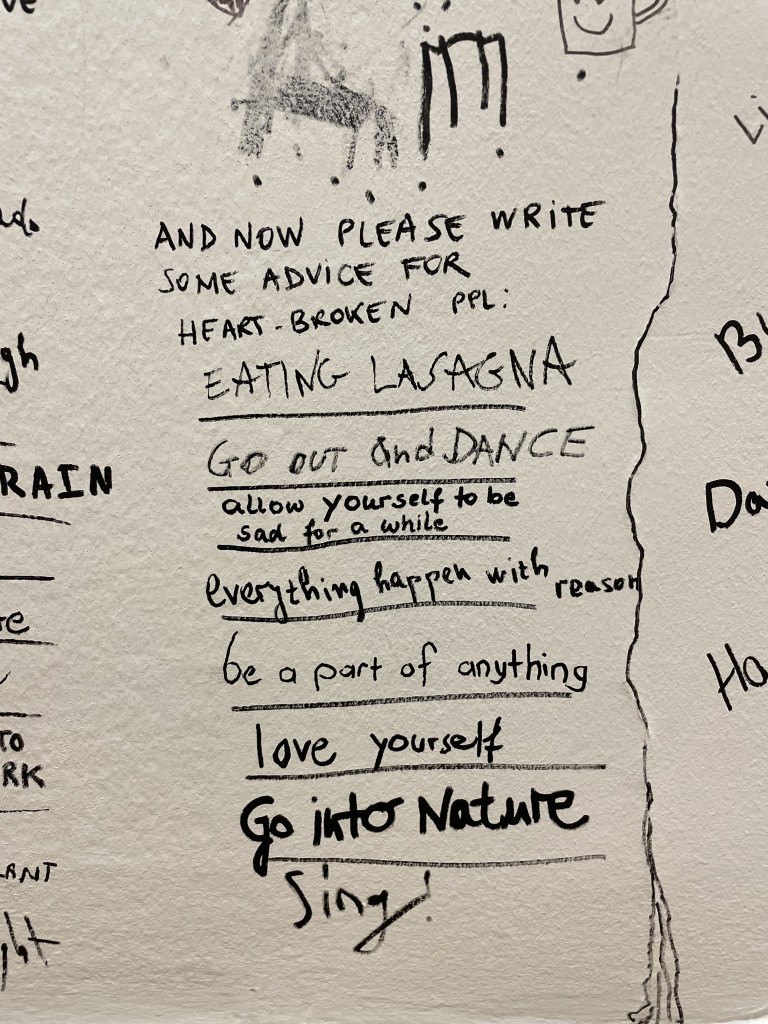 AND NOW PLEASE WRITE
SOME ADVICE FOR
HEART-BROKEN PPL:
EATING LASAGNA
GO OUT and DANCE
allow yourself to be
sad for a while
everything happen with reason
be a part of anything
love yourself
Go into Nature
Sing!
RAIN
TO
RK